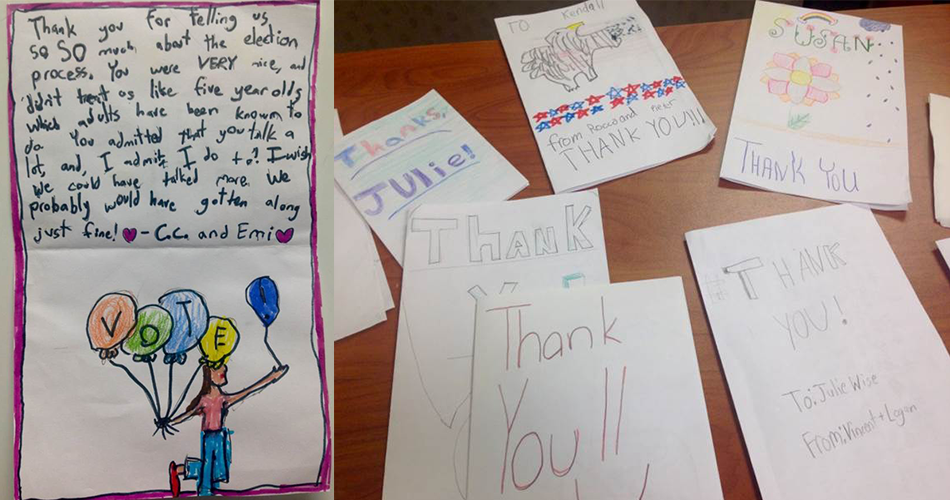 Thank you for telling us
so SO much about the election
process. You were VERY nice, and
didn't treat us like five year olds
which adults have been known to
do. You admitted that you talk a
lot, and, I admit, I do to? I wish
we could have talked more. We
probably would have gotten along
just fine! - C.C. and Emi
V O T E !
Thanks,
JULie!
TO Kendall
from Rocco and
THANK YOU!!!
SUSAN
THANK YOU
THANK
Thank
You!!
THANK
YOU!
To: Julie Wise
From: Vincent + Logan